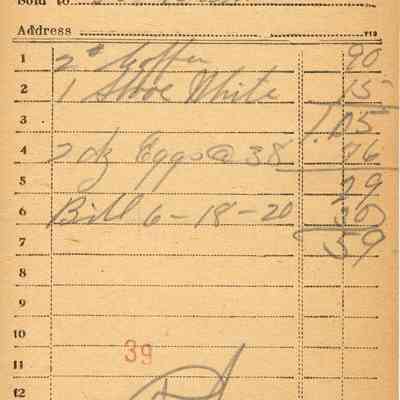 Sold to
Address
1 2# Coffee 90
2 1 Shoe White 15
3 1.05
4 2 dz Eggs @ 38 76
5 29
6 Bill 6-18-20 30
7 59
8
9
10
39
11
12